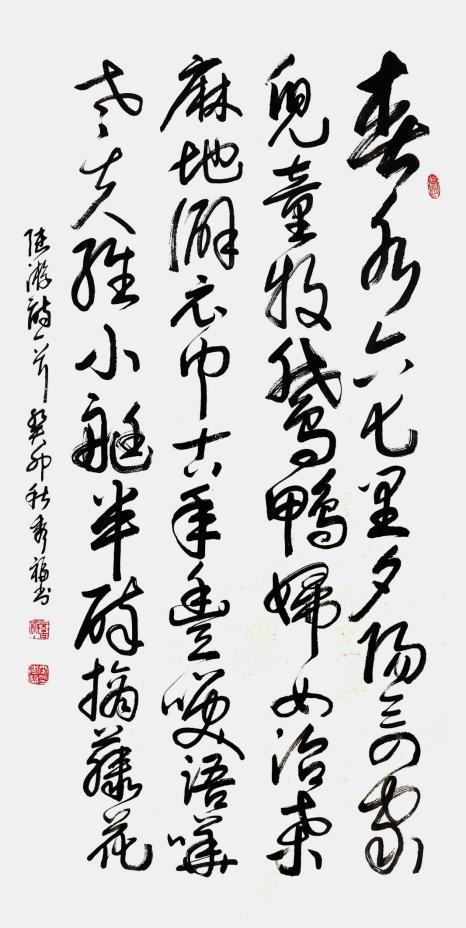 春水六七里夕陽三四家
兒童牧鵝鴨婦女治桑
麻地僻衣巾古年豐咲語嘩
老夫維小艇半醉摘藤花
陸游詩一首 癸卯秋秀福书